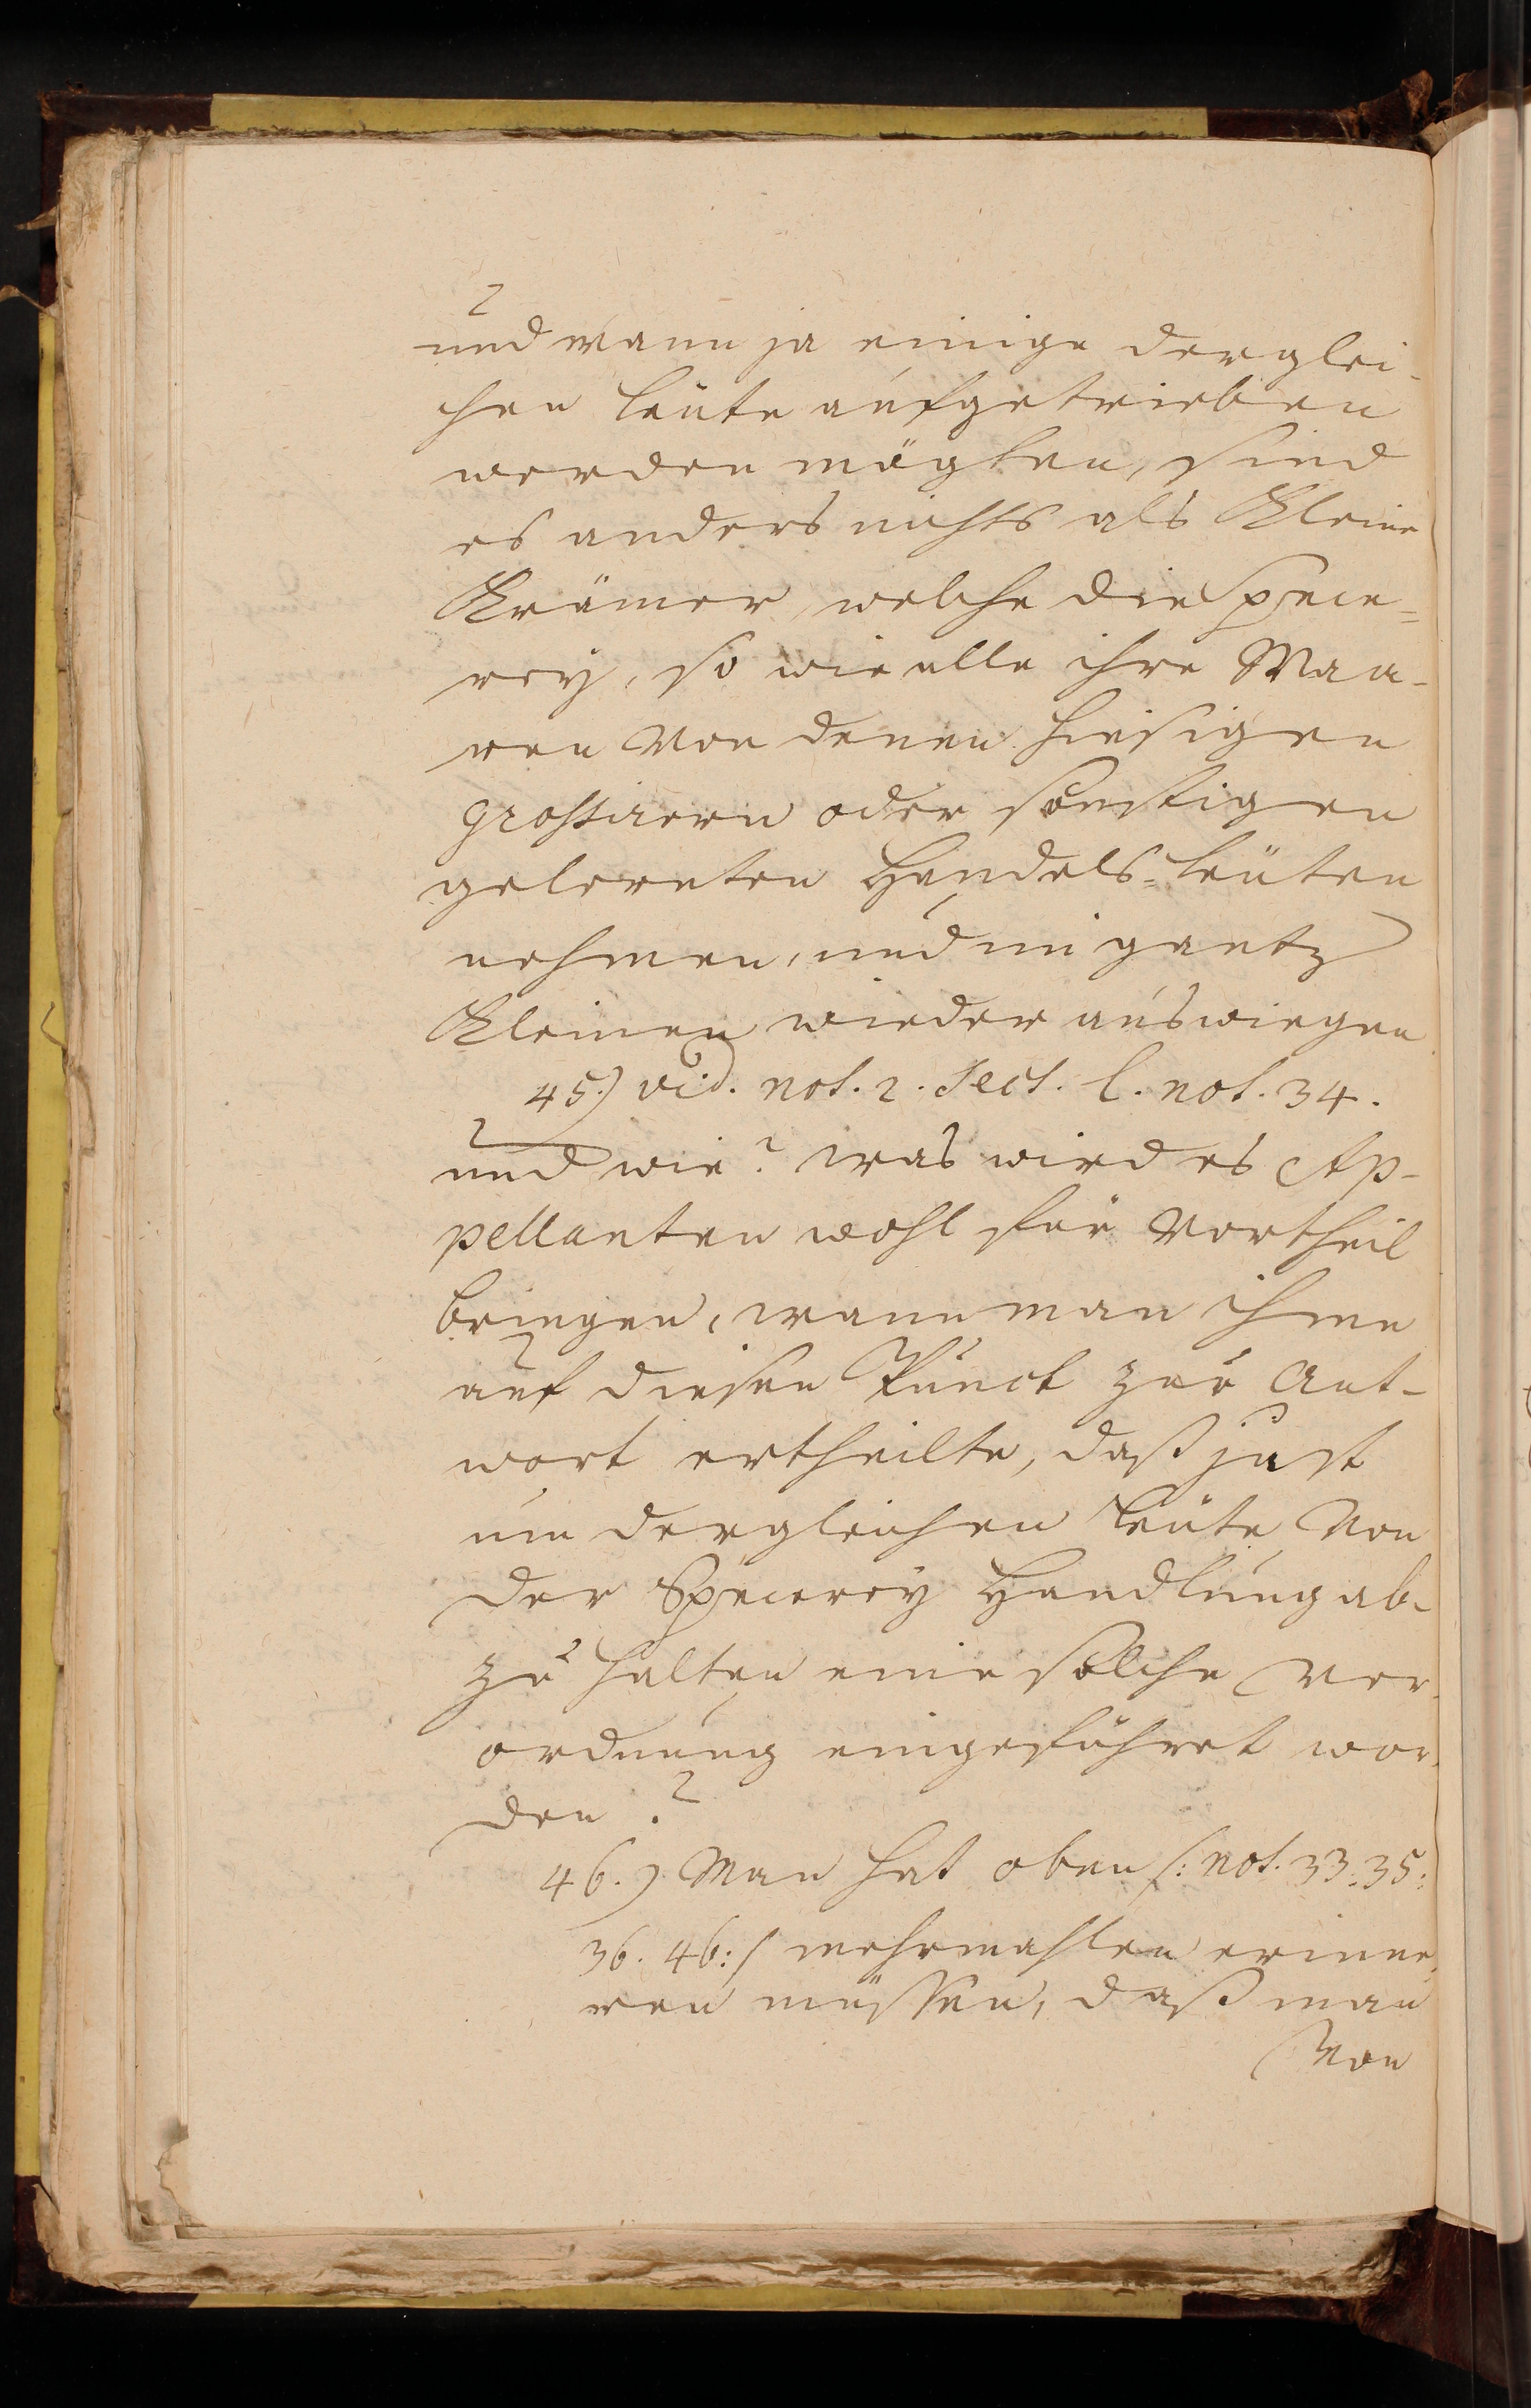 und wann ja einige derglei-
chen leüte aufgetrieben
werden mögten, sind
es anders nichts als Kleine
Krämer, welche die Spece=
rey, so wie alle ihre Waa-
ren von denen hiesigen
grossirern oder sonstigen
gelernten Handels=leüten
nehmen, und im gantz
Kleinen wieder auswiegen
45.) vid. not. 2. Sect. 1. not. 34.
und wie? was wird es Ap-
pellanten wohl für Vortheil
bringen, wann man ihme
auf diesen Punct zur Ant-
wort ertheilte, daß just
um dergleichen leüte von
der Specerey Handlung ab-
zu halten eine solche Ver-
ordnung eingeführet wor-
den?
46.) Man hat oben /: not. 33. 35.
36. 46: / mehrmahlen erinne-
ren müssen, daß man
von